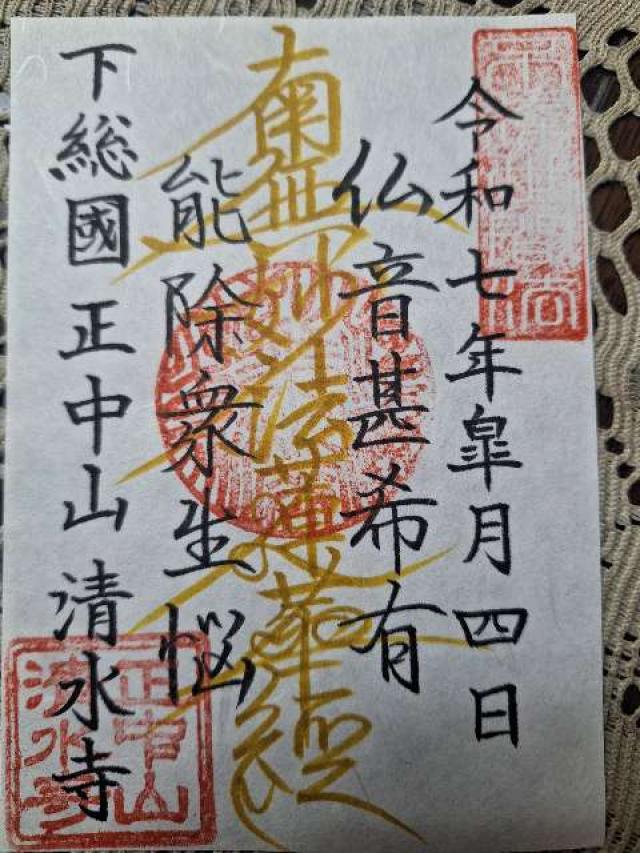 令和七年皐月四日
仏音甚希有
南無妙法蓮華経
能除衆生悩
下総國正中山清水寺
正中山
清水寺